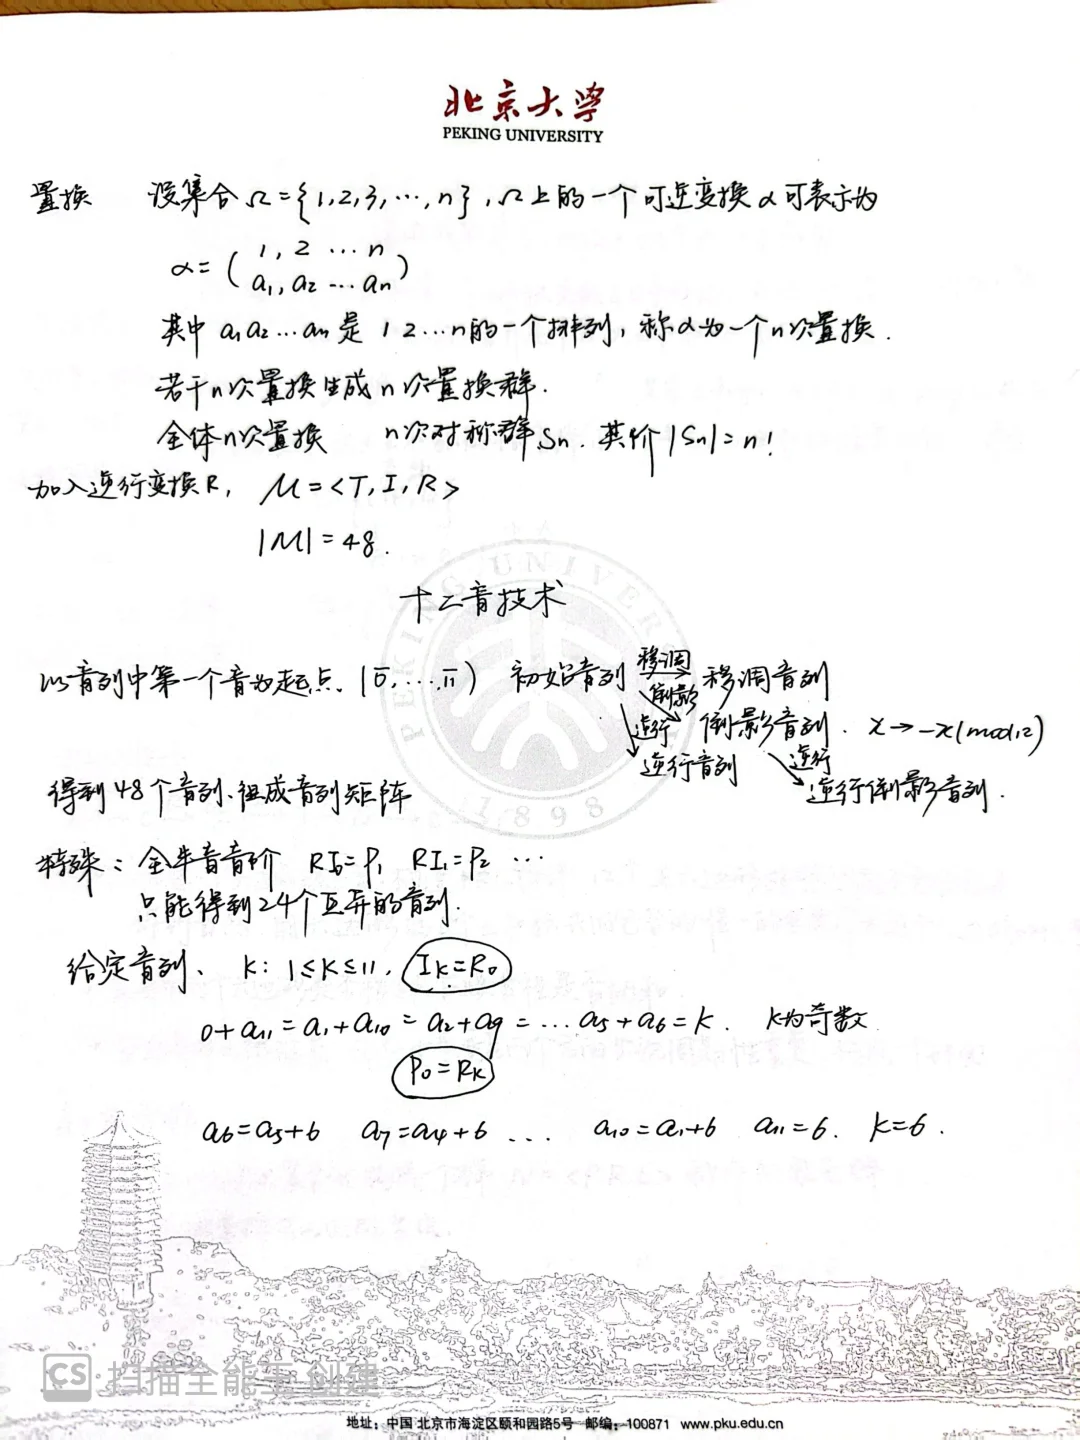 北京大学
PEKING UNIVERSITY
置换 设集合Ω={1,2,3,…,n},Ω上的一个可逆变换α可表示为
α=( 1, 2 … n
a₁, a₂ … aₙ )
其中 a₁a₂…aₙ 是 1 2…n的一个排列,称α为一个n次置换.
若干n次置换生成n次置换群.
全体n次置换 n次对称群Sn. 其阶|Sn|=n!
加入逆行变换R, M=<T,I,R>
|M|=48.
十二音技术
以音列中第一个音为起点.(0̅,…,1̅1̅) 初始音列 移调 移调音列
倒影 倒影音列. x→-x(mod12)
逆行 逆行音列 逆行 逆行倒影音列.
得到48个音列、组成音列矩阵
特殊: 全半音音阶 RI₀=P₁ RI₁=P₂ …
只能得到24个互异的音列.
给定音列、 K: 1≤K≤11. Iₖ=R₀
0+a₁₁=a₁+a₁₀=a₂+a₉=…a₅+a₆=K. K为奇数
P₀=Rₖ
a₆=a₅+6 a₇=a₄+6 … a₁₀=a₁+6 a₁₁=6. K=6.
PEKING UNIVERSITY
1898
CS 扫描全能王 创建
地址:中国 北京市海淀区颐和园路5号 邮编:100871 www.pku.edu.cn